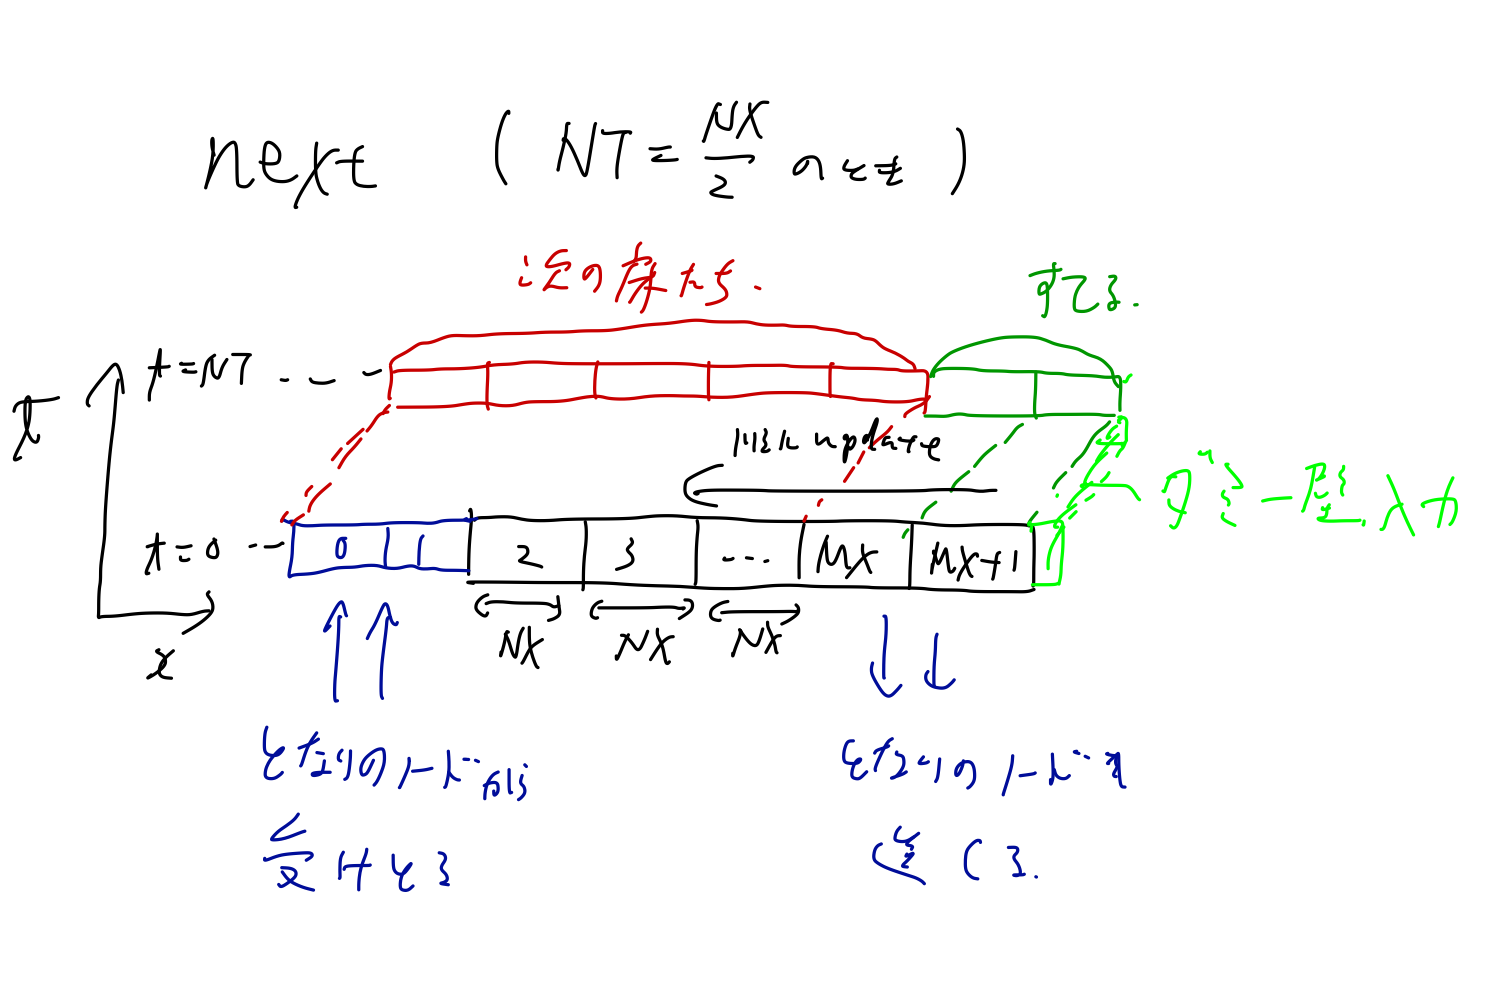 next ( NT = NX/2 のとき )
次の床たち.
すてる.
t=NT ...
t
順に update
ダミー壁入力
t=0 ... 0 1 2 3 ... MX MX+1
NX NX NX
x
となりのノードから
受けとる
となりのノードへ
送る.